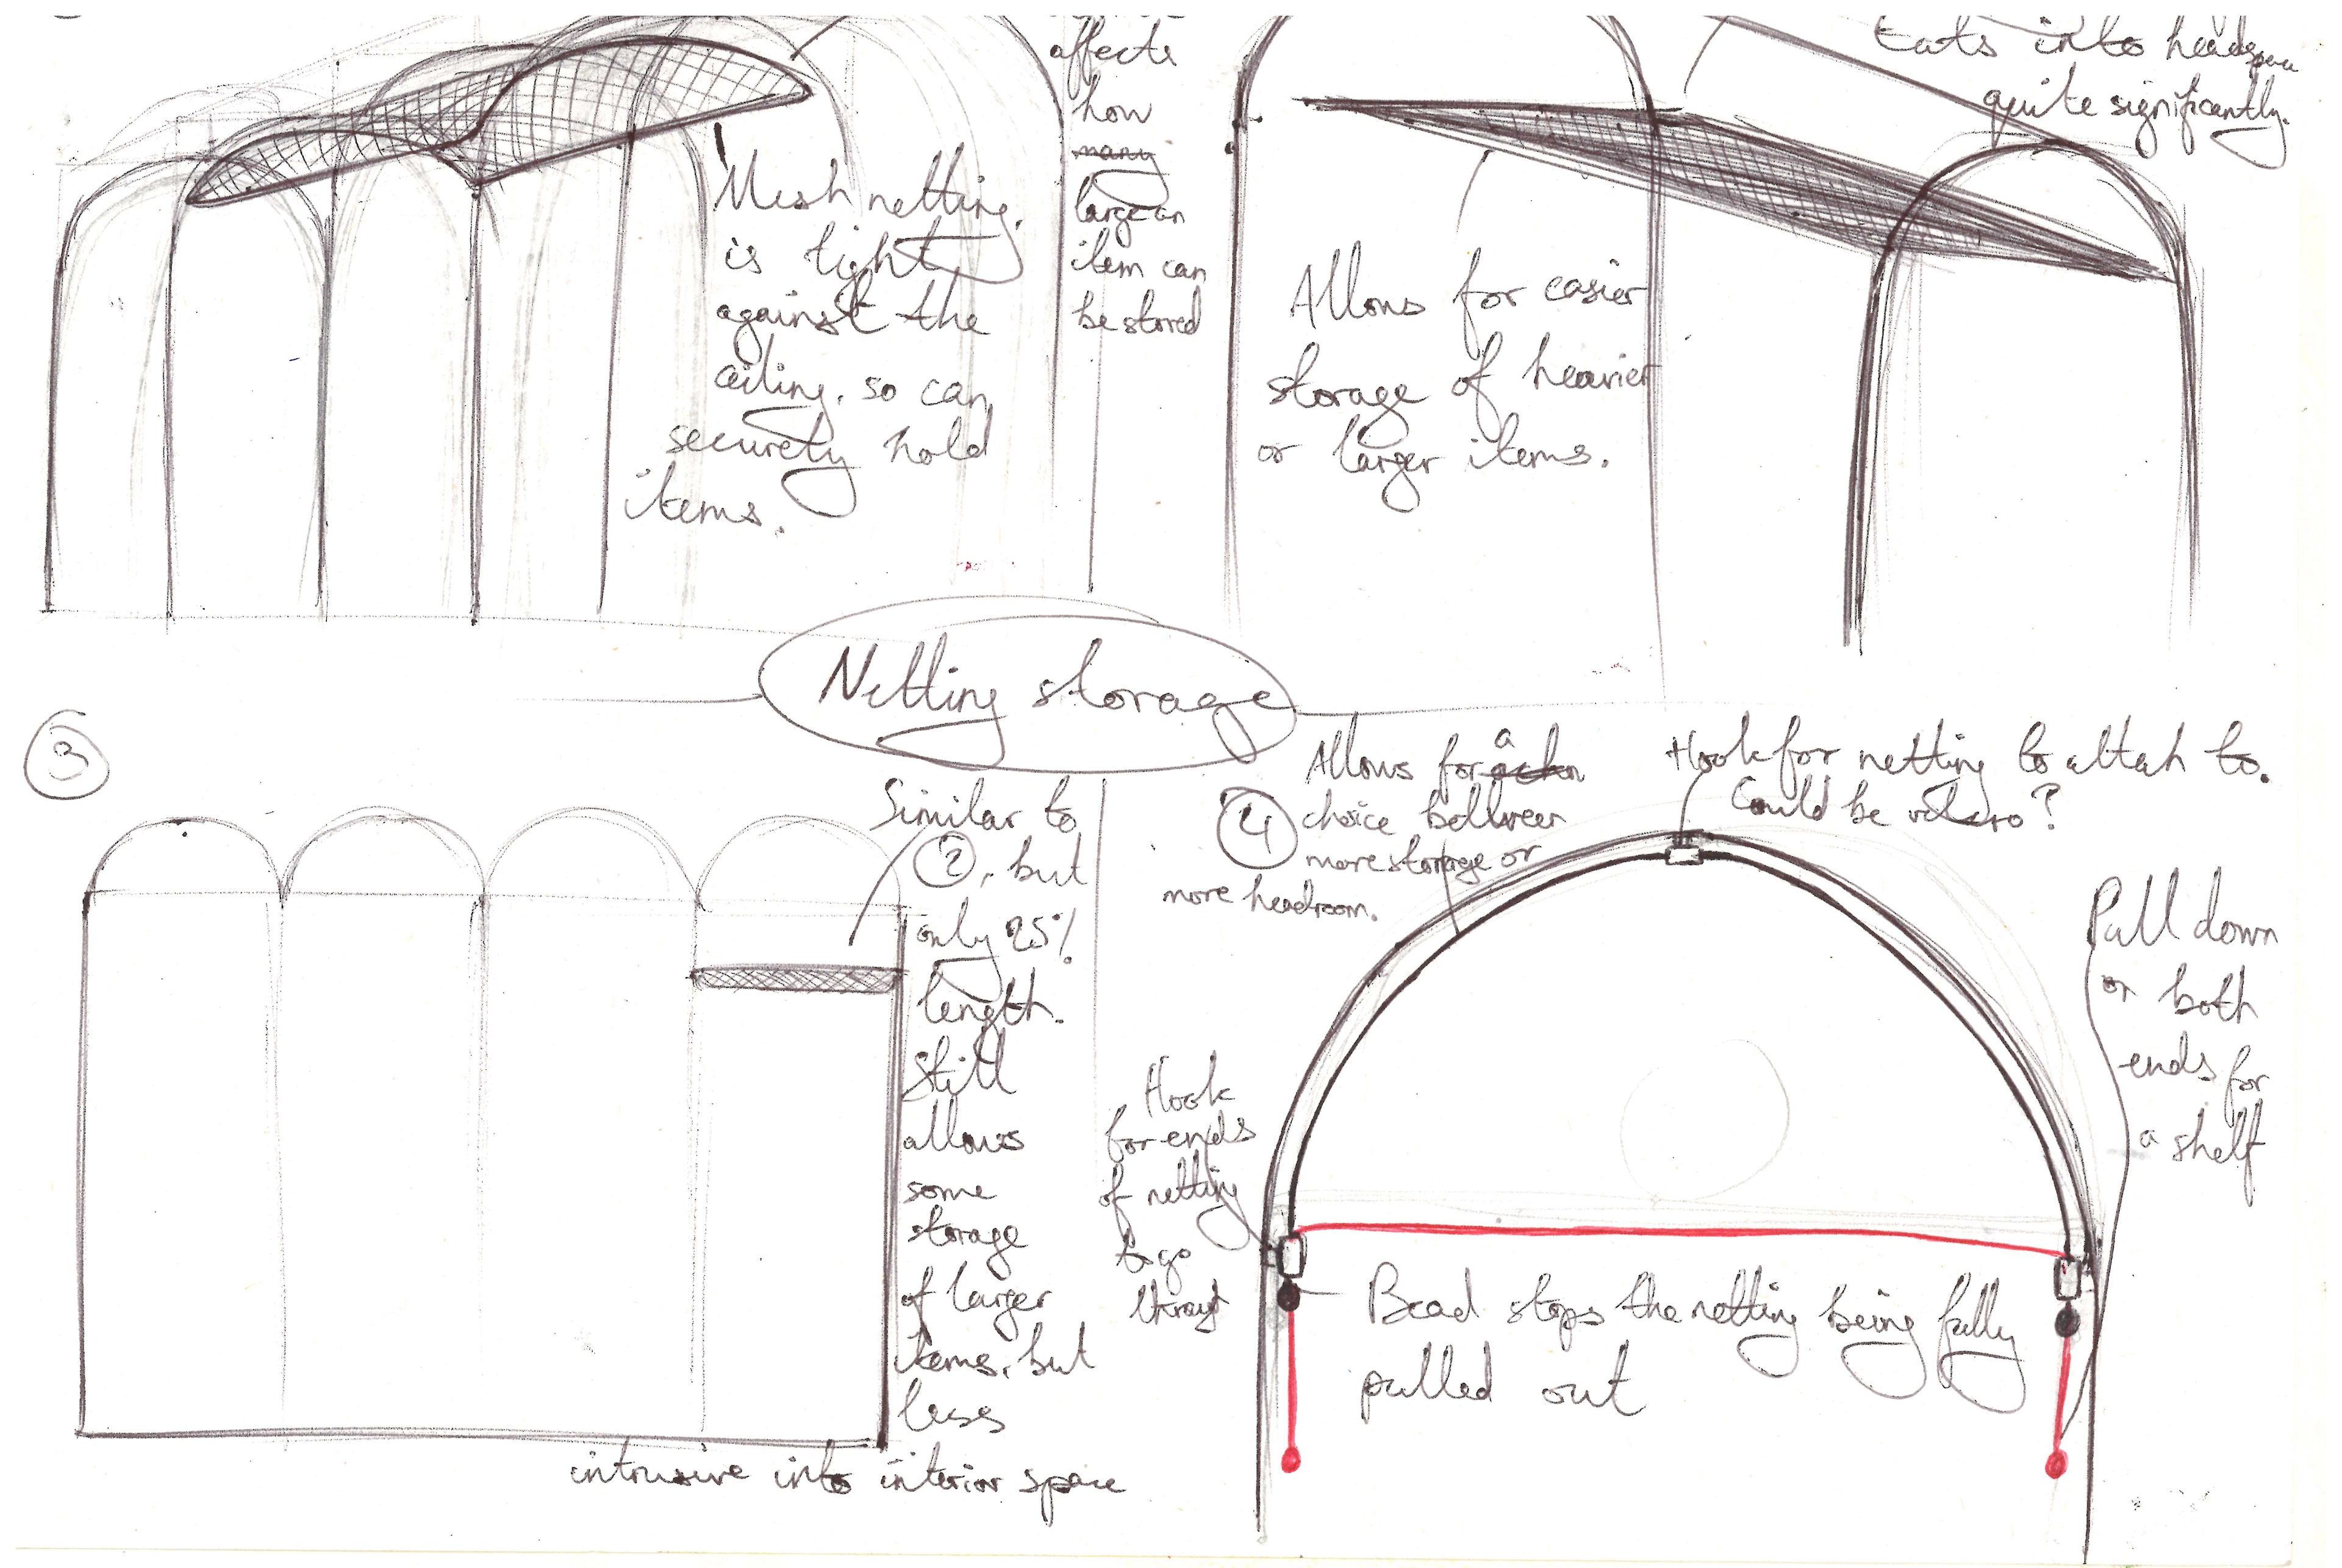 affects
how
many
large an
item can
be stored
Mesh netting.
is tight
against the
ceiling. so can
securely hold
items.
Eats into headspace
quite significantly.
Allows for easier
storage of heavier
or larger items.
Netting storage
3
Similar to
2, but
only 25%
length.
Still
allows
some
storage
of larger
items, but
less
intrusive into interior space
4
Allows for a
choice between
more storage or
more headroom.
Hook for netting to attah to.
Could be velcro?
Pull down
on both
ends for
a shelf
Hook
for ends
of netting
to go
through
Bead stops the netting being fully
pulled out